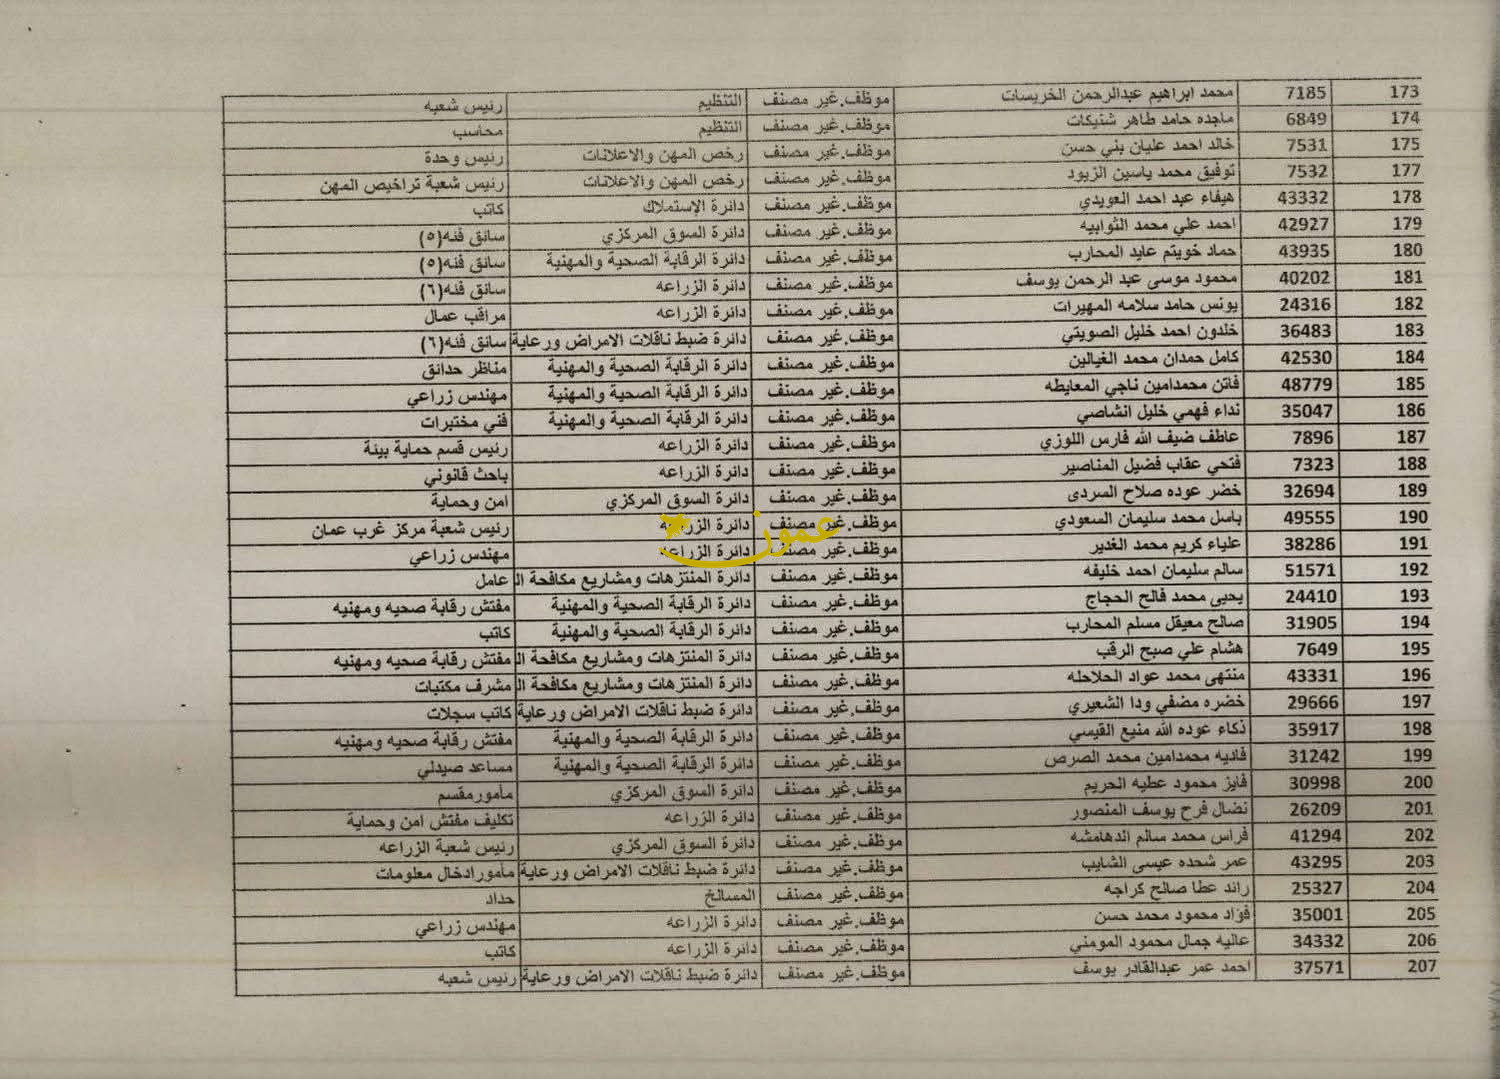 173 7185 محمد ابراهيم عبدالرحمن الخريسات موظف.غير مصنف التنظيم رئيس شعبه
174 6849 ماجده حامد طاهر شنيكات موظف.غير مصنف التنظيم محاسب
175 7531 خالد احمد عليان بني حسن موظف.غير مصنف رخص المهن والاعلانات رئيس وحدة
177 7532 توفيق محمد ياسين الزيود موظف.غير مصنف رخص المهن والاعلانات رئيس شعبة تراخيص المهن
178 43332 هيفاء عبد احمد العويدي موظف.غير مصنف دائرة الإستملاك كاتب
179 42927 احمد علي محمد الثوابيه موظف.غير مصنف دائرة السوق المركزي سائق فئه(٥)
180 43935 حماد خويتم عايد المحارب موظف.غير مصنف دائرة الرقابة الصحية والمهنية سائق فئه(٥)
181 40202 محمود موسى عبد الرحمن يوسف موظف.غير مصنف دائرة الزراعه سائق فئه(٦)
182 24316 يونس حامد سلامه المهيرات موظف.غير مصنف دائرة الزراعه مراقب عمال
183 36483 خلدون احمد خليل الصويتي موظف.غير مصنف دائرة ضبط ناقلات الامراض ورعاية سائق فئه(٦)
184 42530 كامل حمدان محمد الغيالين موظف.غير مصنف دائرة الرقابة الصحية والمهنية مناظر حدائق
185 48779 فاتن محمدامين ناجي المعايطه موظف.غير مصنف دائرة الرقابة الصحية والمهنية مهندس زراعي
186 35047 نداء فهمي خليل انشاصي موظف.غير مصنف دائرة الرقابة الصحية والمهنية فني مختبرات
187 7896 عاطف ضيف الله فارس اللوزي موظف.غير مصنف دائرة الزراعه رئيس قسم حماية بيئة
188 7323 فتحي عقاب فضيل المناصير موظف.غير مصنف دائرة الزراعه باحث قانوني
189 32694 خضر عوده صلاح السردى موظف.غير مصنف دائرة السوق المركزي امن وحماية
190 49555 باسل محمد سليمان السعودي موظف.غير مصنف دائرة الزراعه رئيس شعبة مركز غرب عمان
عمون
191 38286 علياء كريم محمد الغدير موظف.غير مصنف دائرة الزراعه مهندس زراعي
192 51571 سالم سليمان احمد خليفه موظف.غير مصنف دائرة المنتزهات ومشاريع مكافحة ال عامل
193 24410 يحيى محمد فالح الحجاج موظف.غير مصنف دائرة الرقابة الصحية والمهنية مفتش رقابة صحيه ومهنيه
194 31905 صالح معيقل مسلم المحارب موظف.غير مصنف دائرة الرقابة الصحية والمهنية كاتب
195 7649 هشام علي صبح الرقب موظف.غير مصنف دائرة المنتزهات ومشاريع مكافحة ال مفتش رقابة صحيه ومهنيه
196 43331 منتهى محمد عواد الحلاحله موظف.غير مصنف دائرة المنتزهات ومشاريع مكافحة ال مشرف مكتبات
197 29666 خضره مضفي ودا الشعيري موظف.غير مصنف دائرة ضبط ناقلات الامراض ورعاية كاتب سجلات
198 35917 ذكاء عوده الله منيع القيسي موظف.غير مصنف دائرة الرقابة الصحية والمهنية مفتش رقابة صحيه ومهنيه
199 31242 فاديه محمدامين محمد الصرص موظف.غير مصنف دائرة الرقابة الصحية والمهنية مساعد صيدلي
200 30998 فايز محمود عطيه الحريم موظف.غير مصنف دائرة السوق المركزي مأمورمقسم
201 26209 نضال فرح يوسف المنصور موظف.غير مصنف دائرة الزراعه تكليف مفتش امن وحماية
202 41294 فراس محمد سالم الدهامشه موظف.غير مصنف دائرة السوق المركزي رئيس شعبة الزراعه
203 43295 عمر شحده عيسى الشايب موظف.غير مصنف دائرة ضبط ناقلات الامراض ورعاية مأمورادخال معلومات
204 25327 رائد عطا صالح كراجه موظف.غير مصنف المسالخ حداد
205 35001 فؤاد محمود محمد حسن موظف.غير مصنف دائرة الزراعه مهندس زراعي
206 34332 عاليه جمال محمود المومني موظف.غير مصنف دائرة الزراعه كاتب
207 37571 احمد عمر عبدالقادر يوسف موظف.غير مصنف دائرة ضبط ناقلات الامراض ورعاية رئيس شعبه